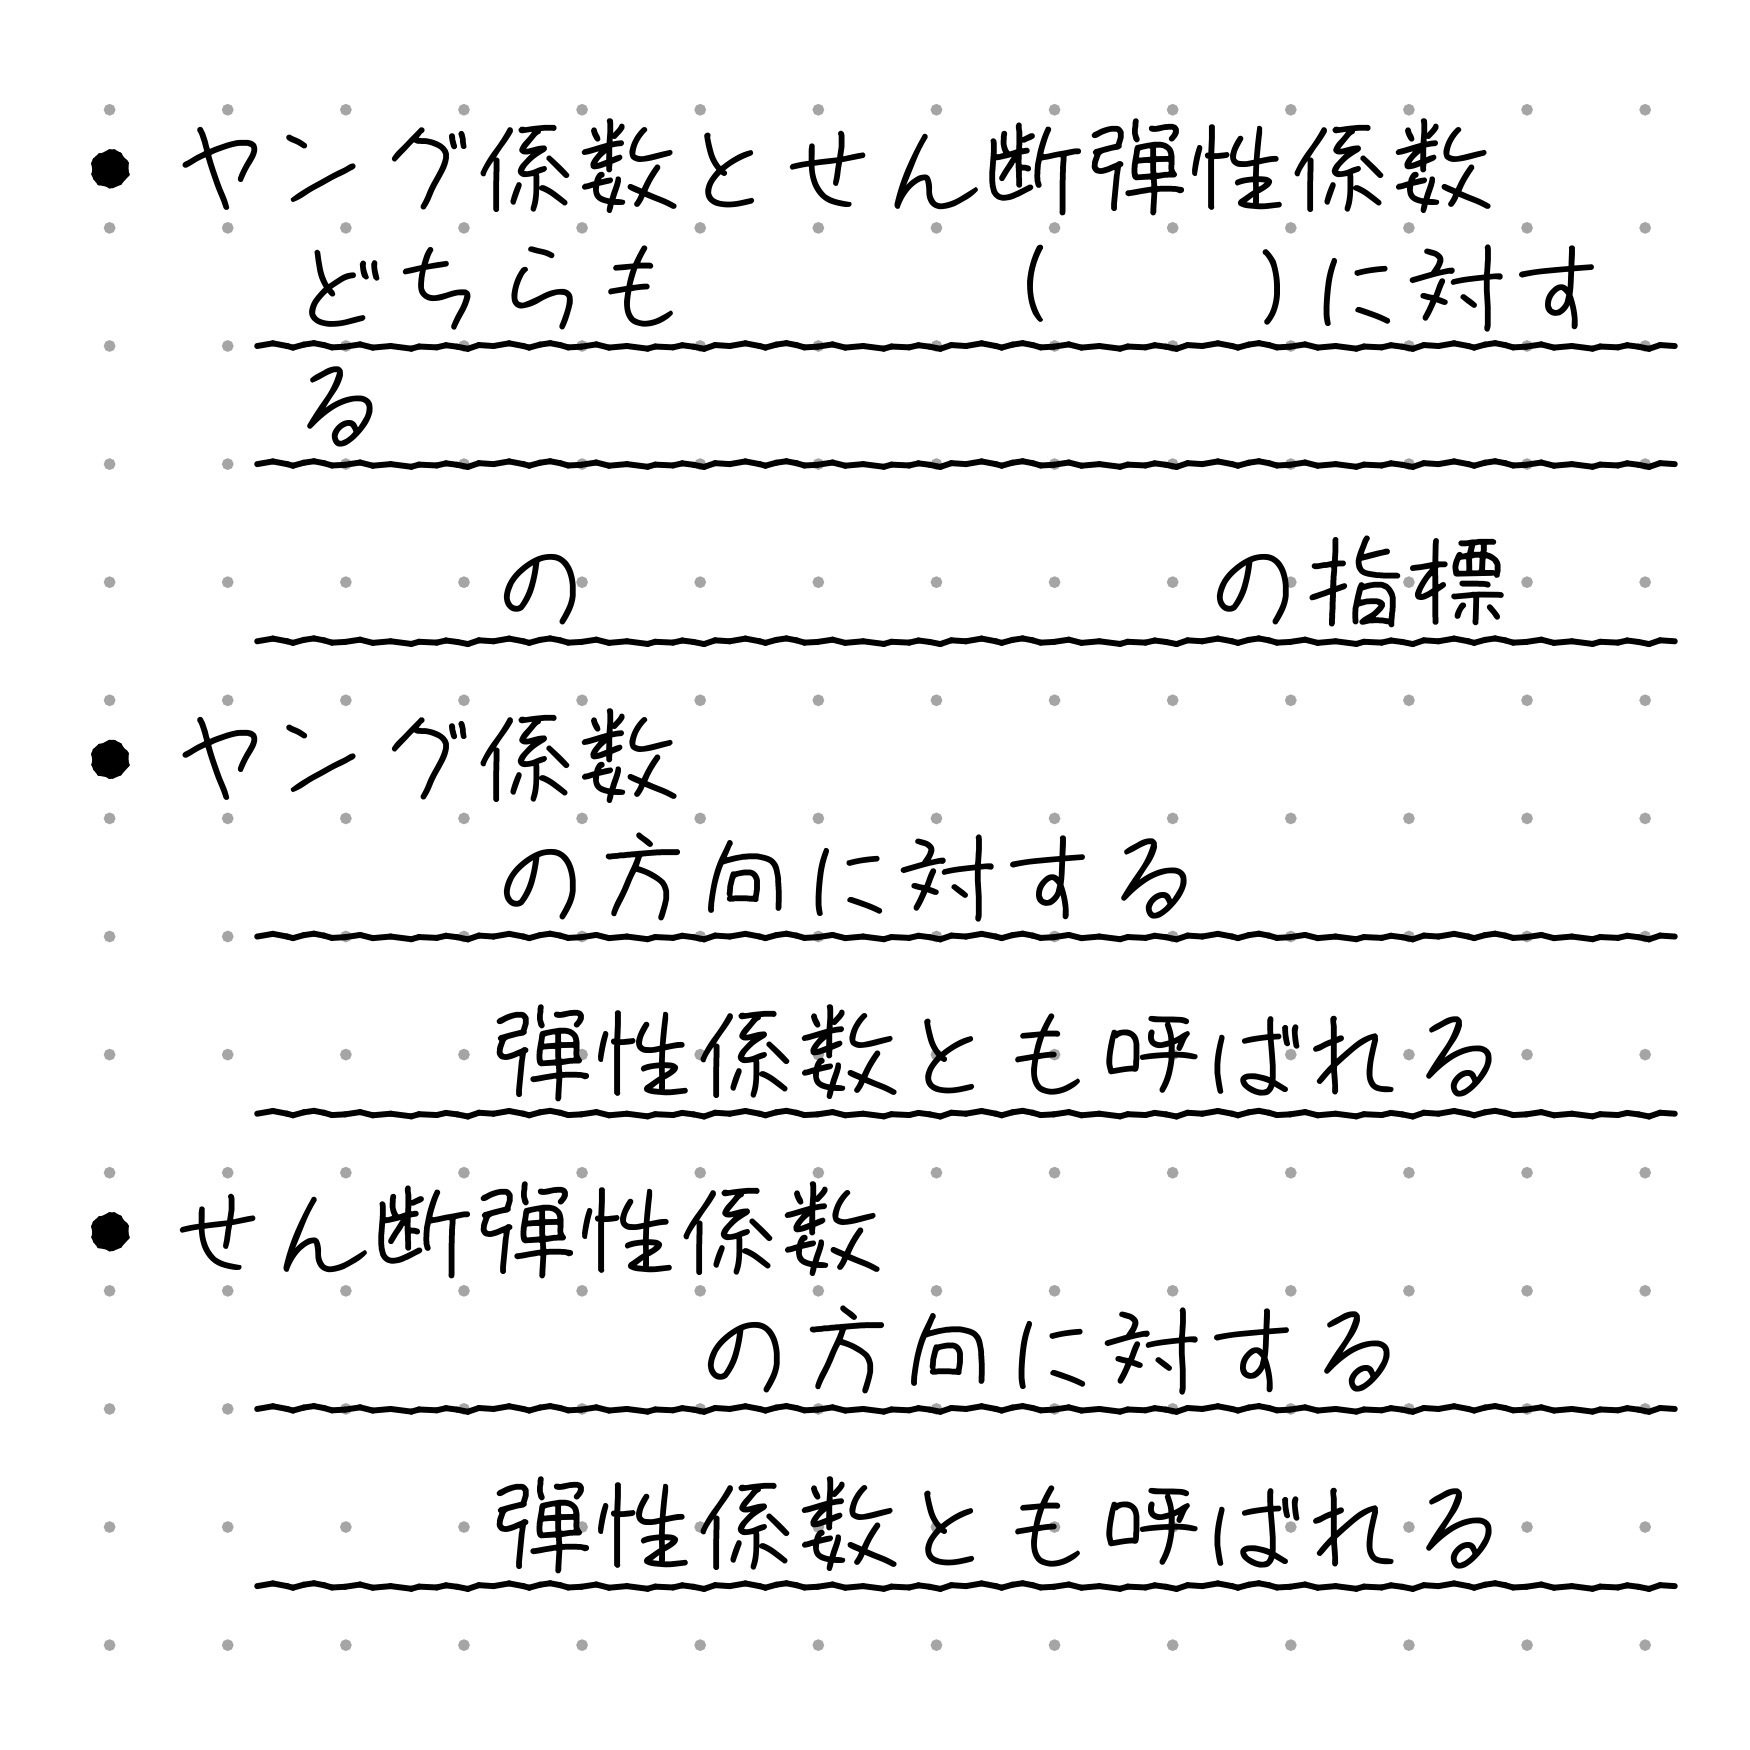 ● ヤング係数とせん断弾性係数
どちらも ( )に対す
る
の の指標
● ヤング係数
の方向に対する
弾性係数とも呼ばれる
● せん断弾性係数
の方向に対する
弾性係数とも呼ばれる